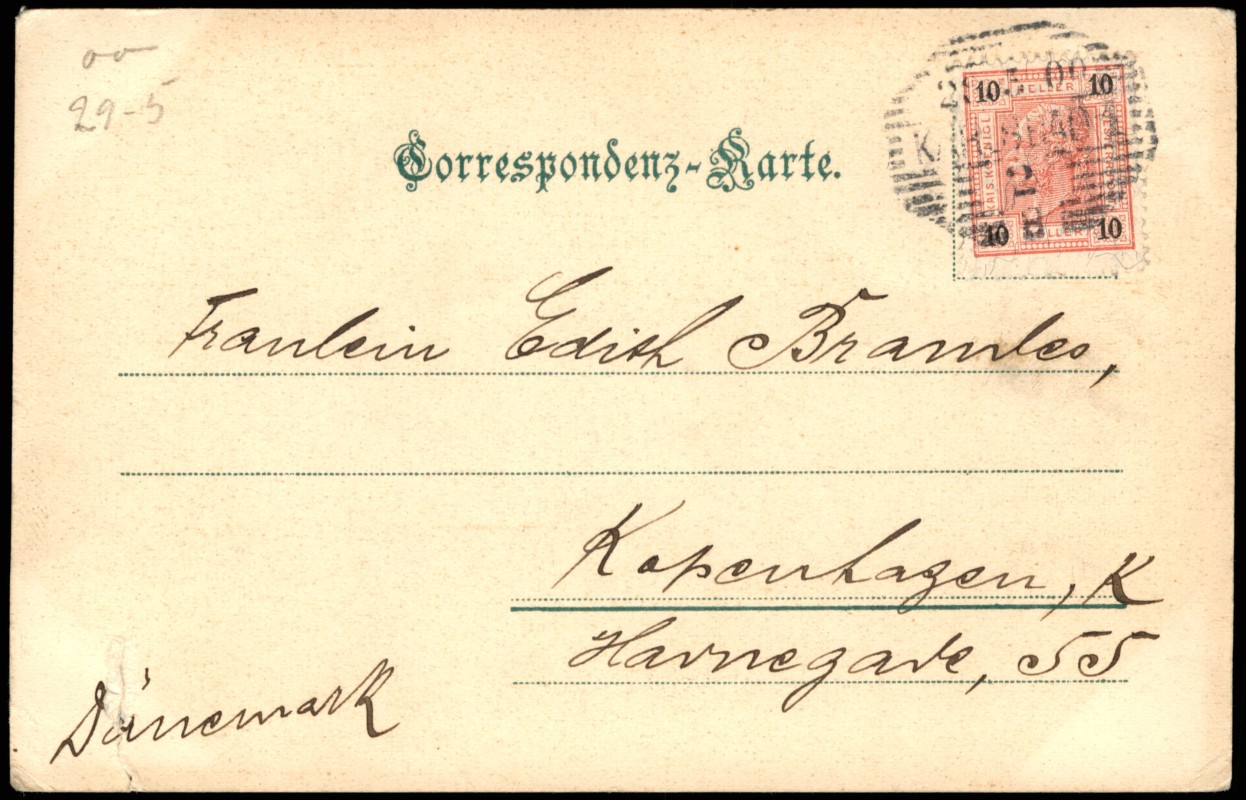 00
29-5
Correspondenz-Karte.
5.00
10 HELLER 10
KAIS. KÖNIGL.
10 HELLER 10
Fraulein Edith Brandes,
Kopenhagen, K
Havnegade, 55
Dänemark